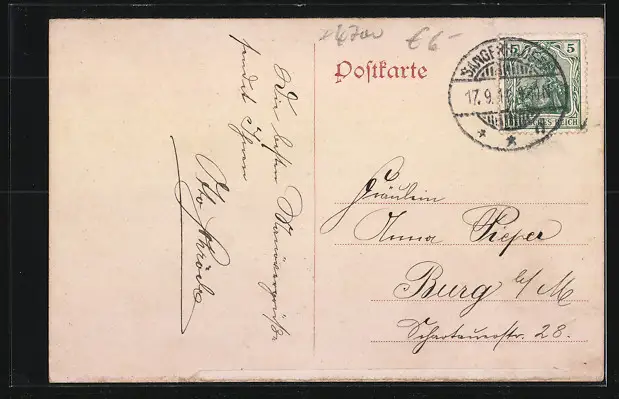 € 6-
Postkarte
SANGERHAUSEN
17.9.1
5
DEUTSCHES REICH
Die besten Manövergrüße
sendet Ihnen
Otto
Fräulein
Anna Pieper
Burg b/M
Schartauerstr. 28.